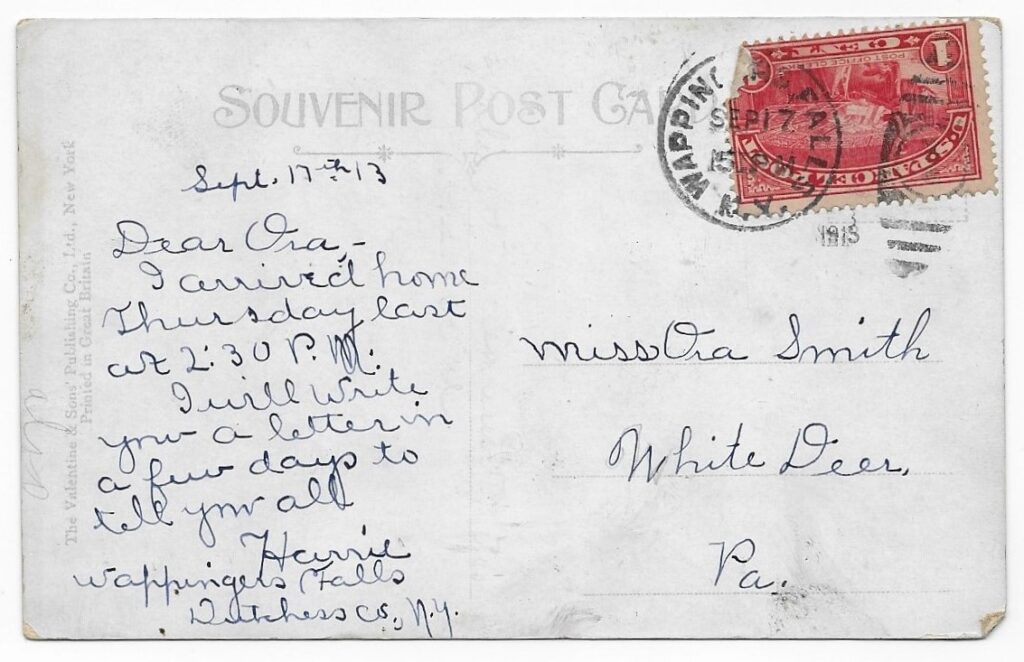 SOUVENIR POST
Sept. 17th 13
Dear Ora,-
I arrived home
Thursday last
at 2:30 P.M.
I will write
you a letter in
a few days to
tell you all
Harrie
Wappingers Falls
Dutchess Co., N.Y.
Miss Ora Smith
White Deer,
Pa.
WAPPINGERS FALLS
N.Y.
SEP 17
1913
1
ONE
POST OFFICE CLERK
U.S. PARCEL POST
The Valentine & Sons' Publishing Co., Ltd., New York
Printed in Great Britain